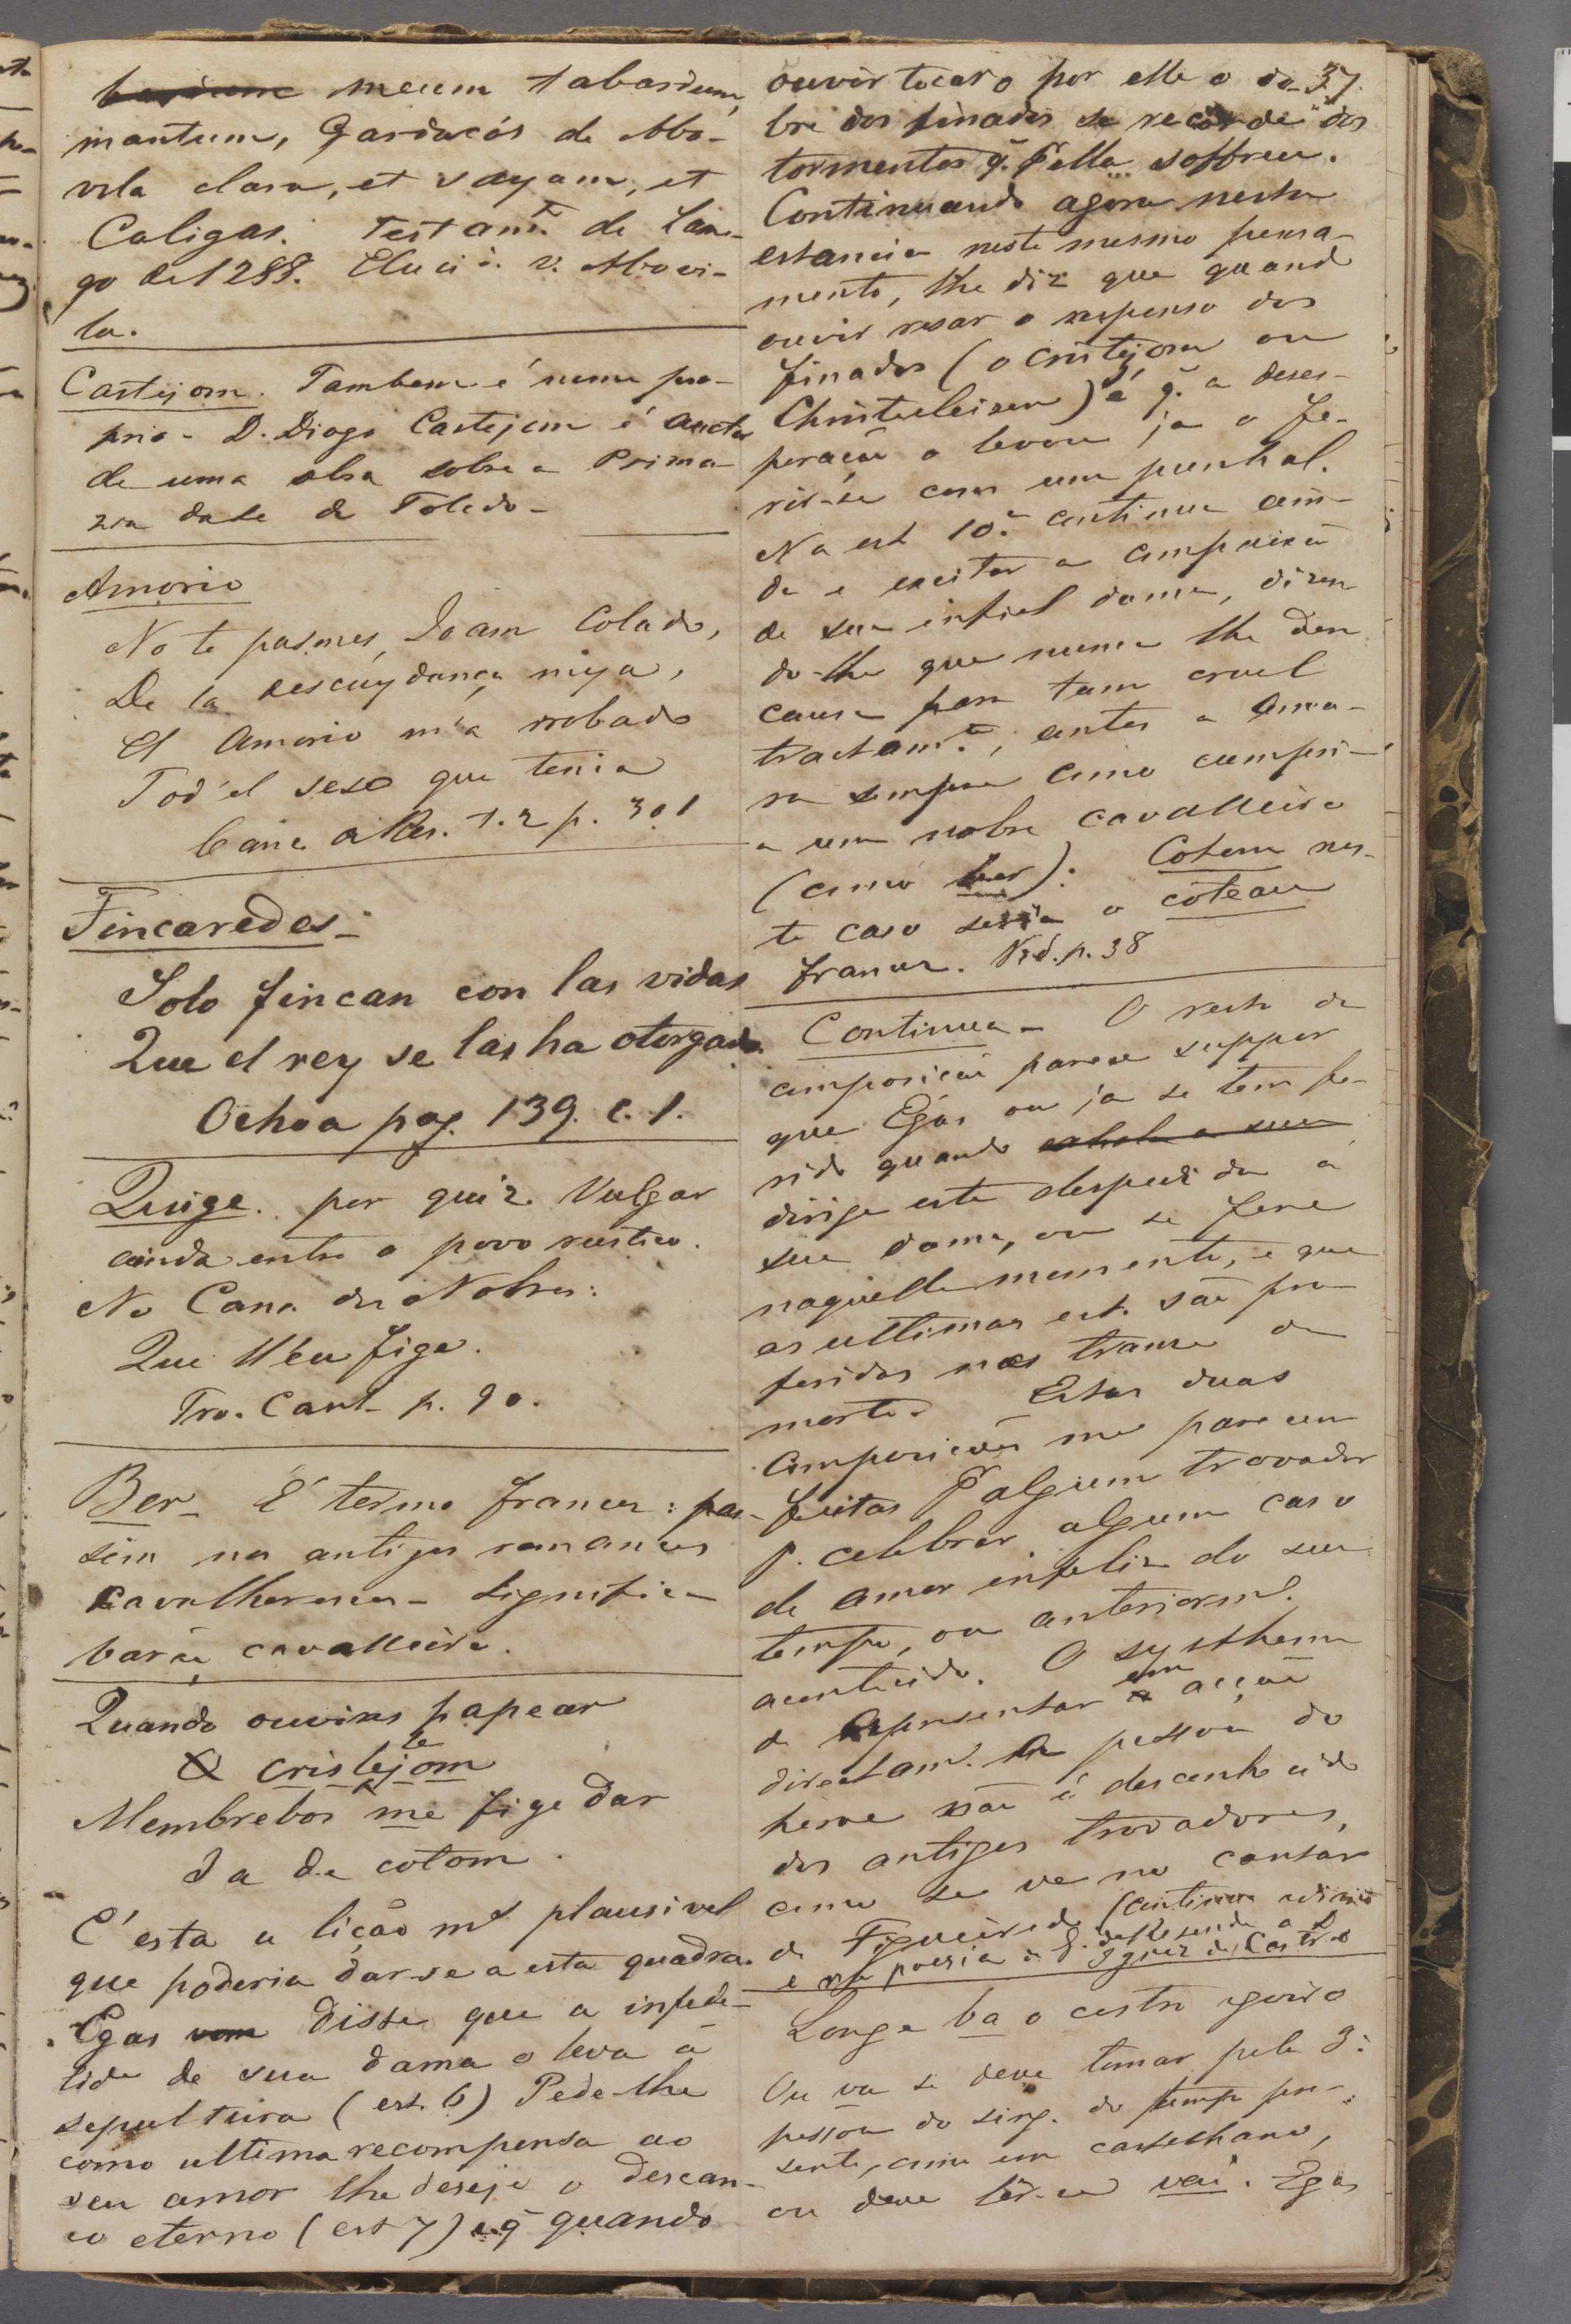 meum tabardum,
mantum, Gardacós de Mo-
vila clara, et sayam, et
Caligas. Testamto. de Lame-
go de 1288. Elucid. v. Movi-
la.
Castejom. Tambem é nome pro-
prio - D. Diogo Castejom é auctor
de uma obra sobre a Prima-
zia da Se de Toledo -
Amorio
No te pasmes, Joam Colado,
De la descuydança miya,
El Amorio m'a rrobado
Tod'el seso que tenia
Canc. de Res. t. 2 p. 301
Fincaredes -
Solo fincan con las vidas
Que el rey se las ha otorgado.
Ochoa pag. 139. c. 1.
Quige. por quiz. Vulgar
ainda entre o povo rustico.
No Canc. dos Nobres:
Que ll'eu fige.
Tro. Cant. p. 90.
Ber - É termo francez: pas-
sim nos antigos romances
cavalherescos - Significa
barão, cavalleiro.
Quando ouvires papear
O cristejom
te
Membrebos me fige dar
Ja de cotom.
É esta a lição ms plausivel
que poderia dar-se a esta quadra.
Egas disse que a infide-
lide de sua dama o leva á
sepultura (est. 6) Pede-lhe
como ultima recompensa ao
seu amor lhe deseje o descan-
ço eterno (est 7) e q̃ quando
37.
ouvir tocar o por elle o do-
bre dos finados se recorde dos
tormentos q̃. pr ella soffreu.
Continuando agora nesta
estancia neste mesmo pensa-
mento, lhe diz que quando
ouvir resar o responso dos
finados (o cristejom ou
Christeleison) é q̃ a deses-
peração o levou ja a fe-
rir-se com um punhal.
Na est 10.ª continua ain-
da e excitar a compaixão
de sua infiel dama, dizen
do-lhe que nunca lhe deu
causa para tam cruel
tractamto., antes a ama-
ra sempre como cumpri-
a um nobre cavalleiro
(como ber): Cotom nes-
te caso seria o coteau
francez. Vid. p. 38
Continua - O resto da
composição parece suppor
que Egas ou ja se tem fe-
rido quando
dirige esta despedida a
sua dama, ou se fere
naquelle momento, e que
as ultimas est. são pro-
feridas no transe da
morte. Estas duas
composições me parecem
feitas pr algum trovador
p. celebrar algum caso
de amor infeliz do seu
tempo, ou anteriormte.
acontecido. O systhema
de representar em acção
directamte. a pessoa do
heroe não é desconhecido
dos antigos trovadores,
como se ve na cansão
do Figueiredo (continua
e na poesia de G. de Resende a D. Ignez de Castro
Longe ba o castro igoiro
Ou va se deve tomar pela 3.ª
pessoa do sing. do tempo pre-
sente, como em castelhano,
ou deve ler-se vai. Egas